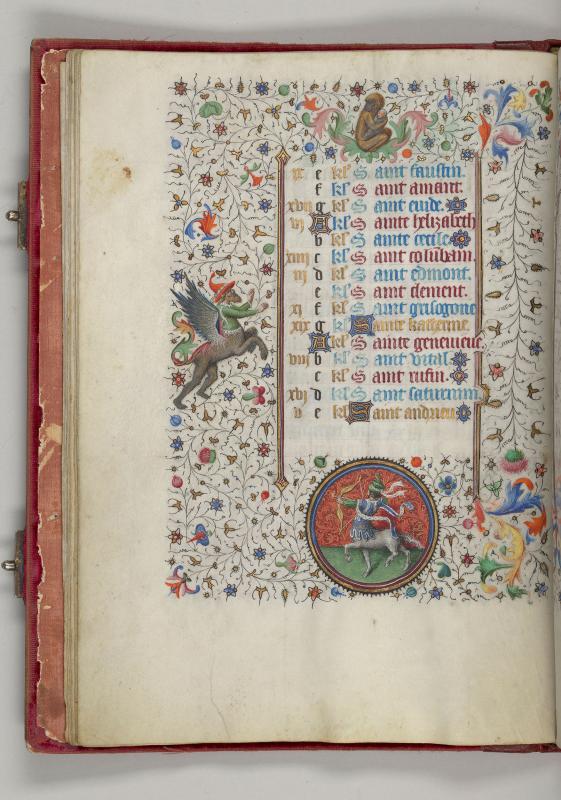 ix e kl' Saint faustin.
f kl' Saint amant.
xvii g kl' Saint euide.
vi A kl' Sainte helizabeth
b kl' Sainte cecile
xiiii c kl' Saint columbam.
iii d kl' Saint edmont.
e kl' Saint clement.
xi f kl' Saint grisogone
xix g kl' Sainte katherine.
A kl' Sainte geneuieue.
viii b kl' Saint vital.
c kl' Saint rufin.
xvi d kl' Saint saturnin.
v e kl' Saint andrieu